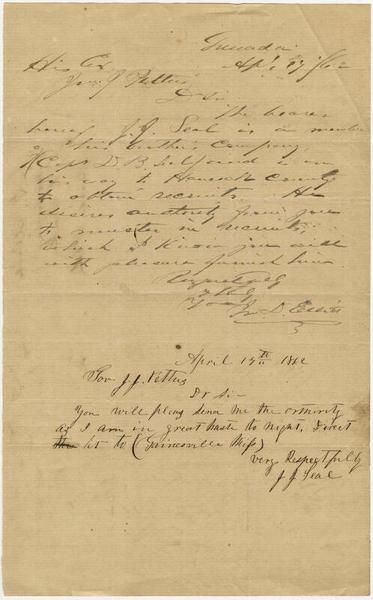 Grenada
Apl 17 /62
His Ex
Jno J Pettus
Dr Sir
The bearer
hereof J. J. Seal is a member
of his brother's Company
(Capt D. B. Seal) and is on
his way to Hancock County
to obtain recruits. He
desires authority from you
to muster in recruits,
which I know you will
with pleasure furnish him
Respectfully
& truly
Yours
Jno D. Elliott
April 17th 1862
Gov. J. J. Pettus
Dr Sir
You will pleas send me the orthority
as I am in great haste to Night, Direct
to (Gainesville Miss)
very Respectfully
J J Seal